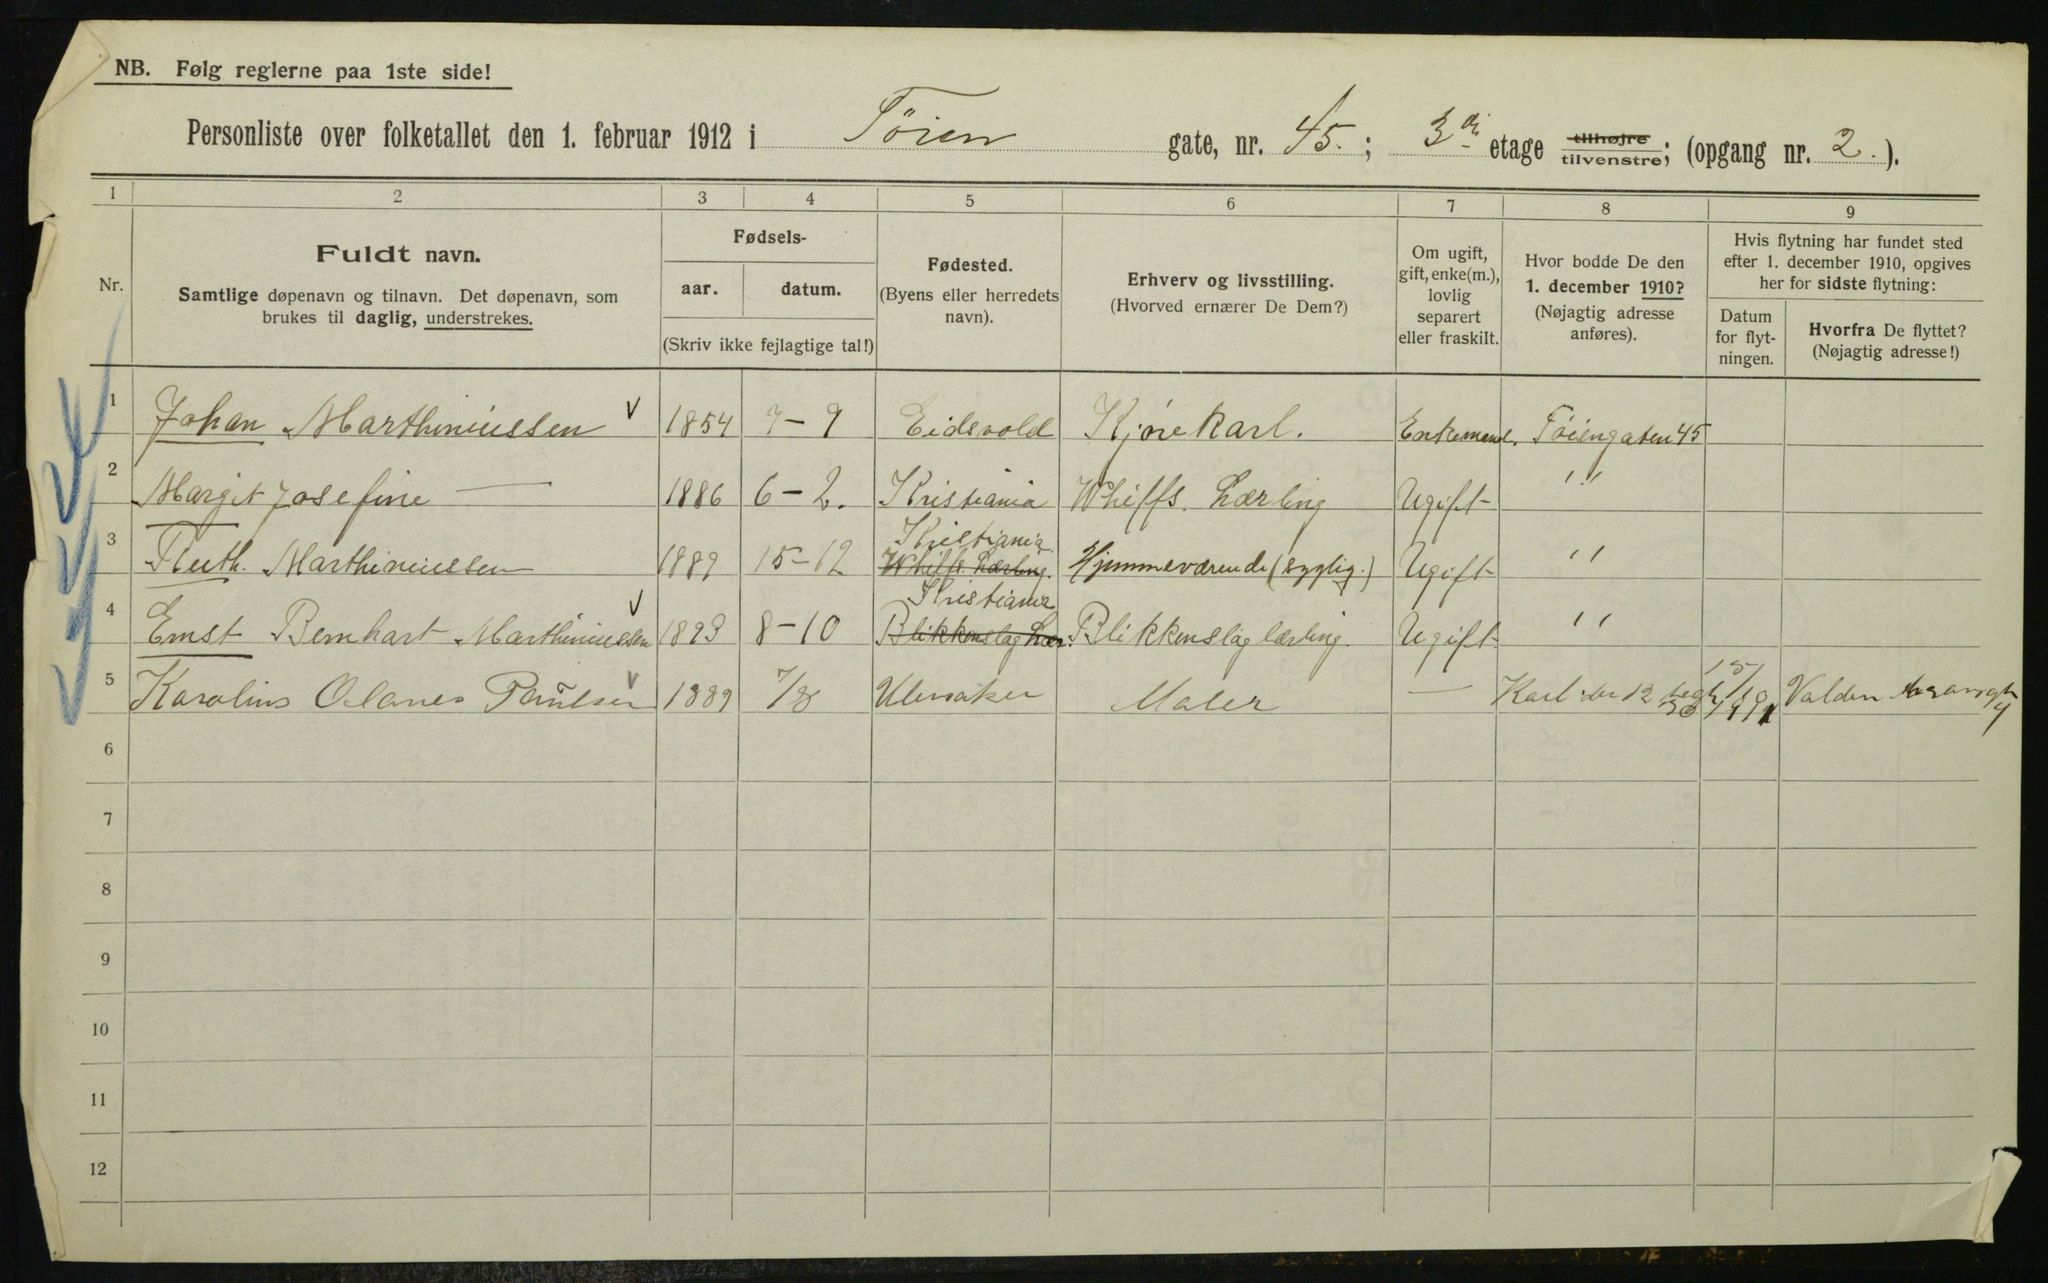 NB. Følg reglerne paa 1ste side!
Personliste over folketallet den 1. februar 1912 i Tøien gate, nr. 45. ; 3di etage tilhøjre tilvenstre; (opgang nr. 2. ).
1 2 3 4 5 6 7 8 9
Nr.
Fuldt navn.
Samtlige døpenavn og tilnavn. Det døpenavn, som
brukes til daglig, understrekes.
Fødsels-
aar. datum.
(Skriv ikke fejlagtige tal!)
Fødested.
(Byens eller herredets
navn).
Erhverv og livsstilling.
(Hvorved ernærer De Dem?)
Om ugift,
gift, enke(m.),
lovlig
separert
eller fraskilt.
Hvor bodde De den
1. december 1910?
(Nøjagtig adresse
anføres).
Hvis flytning har fundet sted
efter 1. december 1910, opgives
her for sidste flytning:
Datum
for flyt-
ningen.
Hvorfra De flyttet?
(Nøjagtig adresse!)
1 Johan Marthiniussen 1854 7-9 Eidsvold Kjørekarl. Enkemand. Tøiengaten 45
2 Margit Josefine — 1886 6-2. Kristiania Lærling Ugift "
Kristiania
3 Ruth. Marthiniussen 1889 15-12 Lærling. Hjemmeværende (syglig.) Ugift "
Kristiania
4 Ernst Bernhart Marthiniussen 1893 8-10 Blikkenslag Lær. Blikkenslag lærling. Ugift "
5 Karolius Olanes Paulsen 1889 7/8 Ullensaker Maler —
6
7
8
9
10
11
12